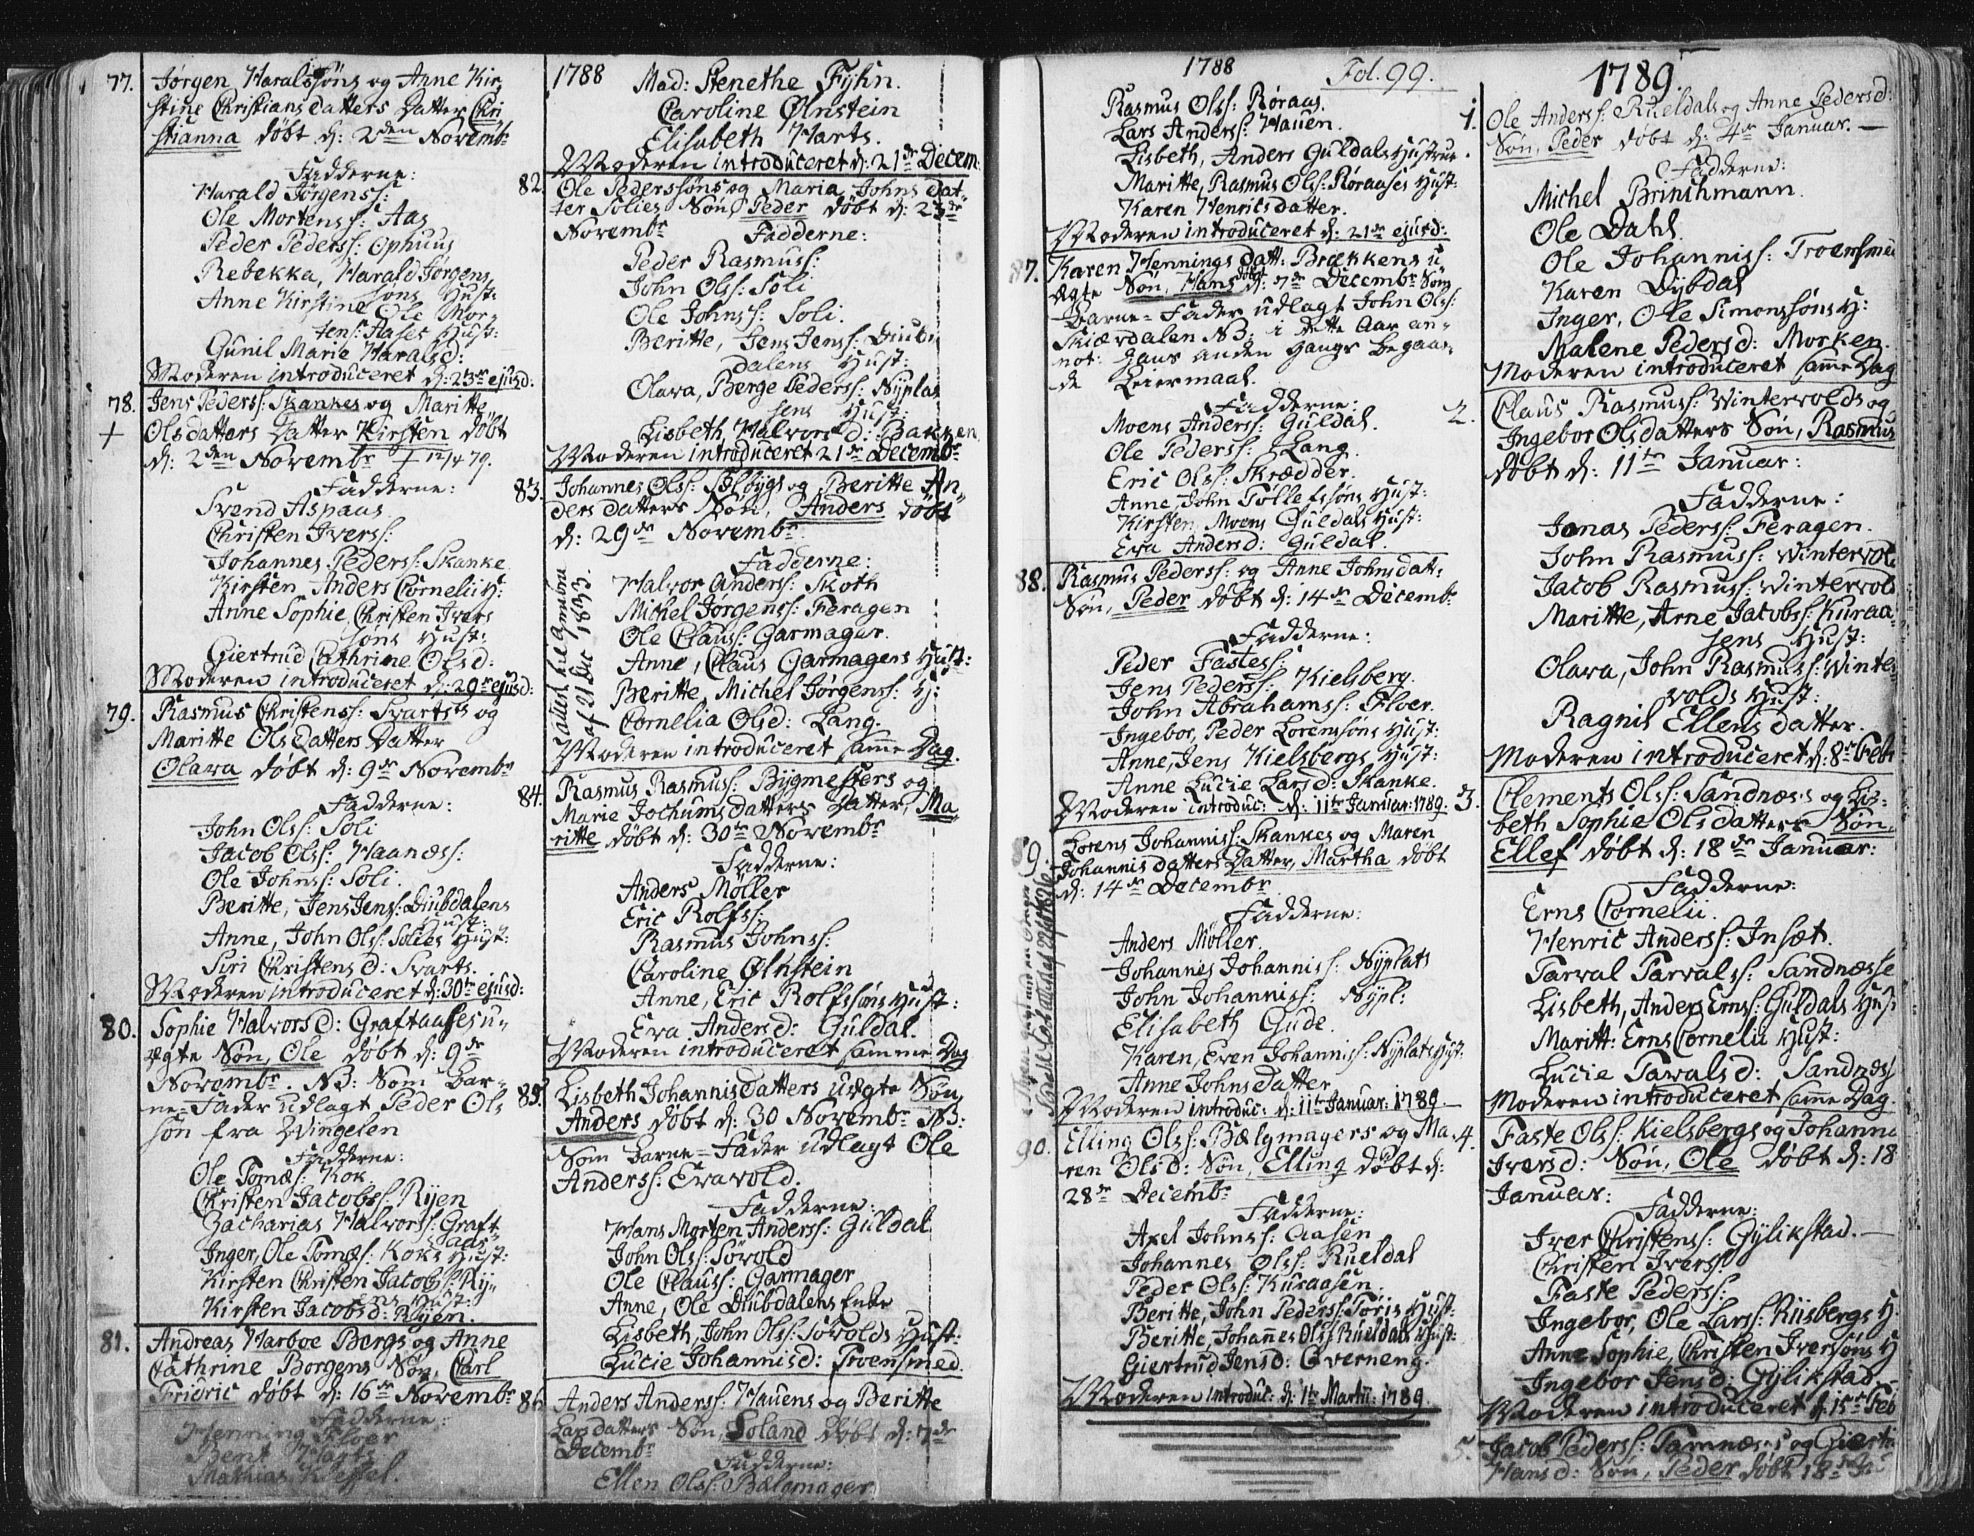 77. Jørgen Haralssøns og Anne Kir-
stine Christians Datters Datter Chri
stianna døbt d: 2den Novembr
Fadderne:
Harald Jørgenss:
Ole Mortenss: Aas
Peder Pederss: Ophuus
Rebekka, Harald Jørgens
søns Hust:
Anne Kirstine Ole Mor-
tens: Aases Hust:
Gunil Marie Haralsd:
Moderen introduceret d: 23de ejusd:
78. Jens Pederss: Skankes og Maritte
+ Olsdatters Datter Kirsten døbt
d: 2den Novembr + 12/4 79.
Fadderne:
Svend Aspaas
Christen Iverss:
Johannes Pederss: Skanke
Kirsten Anders Cornelii H:
Anne Sophie, Christen Ivers
søns Hust:
Giertrud Cathrine Olsd:
Moderen introduceret d: 29de ejusd:
79. Rasmus Christenss: Svartses og
Maritte Olsdatters Datter
Olava døbt d: 9de Novembr
Fadderne:
John Olss: Soli
Jacob Olss: Haanæss:
Ole Johnss: Soli.
Beritte, Jens Jens: Diubdalens
Hust:
Anne, John Olss: Solies Hust:
Siri Christensd: Svarts.
Moderen introduceret d: 30te ejusd:
80. Sophie Halvorsd: Graftaases u-
ægte Søn, Ole døbt d: 9de
Novembr. NB: Som Bar-
ne-Fader udlagt Peder Ols
søn fra Vingelen
Fadderne:
Ole Tomæs: Kok
Christen Jacobss: Ryen
Zacharias Halvorss: Graft-
aas
Inger, Ole Tomæs: Koks Hust:
Kirsten Christen Jacobs: Ry-
ens Hust:
Kirsten Jacobsd: Ryen.
81. Andreas Harboe Bergs og Anne
Cathrine Borgens Søn, Carl
Fridric døbt d: 16de Novembr
Fadderne:
Henning Floer
Bent Harts
Mathias Kleffel.
1788 Mad: Stenethe Fyhn.
Caroline Ølnstein
Elisabeth Harts.
Moderen introduceret d: 21de Decem:
82. Ole Pederssøns og Maria Johns Dat-
ter Solies Søn, Peder døbt d: 23de
Novembr Fadderne:
Peder Rasmuss:
John Olss: Soli
Ole Johnss: Soli.
Beritte, Jens Jenss: Diub-
dalens Hust:
Olava, Berge Pederss: Nyplas
sens Hust:
Lisbeth, Halvorsd: Bakken
Moderen introduceret 21de Decembr
83. Johannes Olss: Ælbygs og Beritte An-
ders Datters Søn, Anders døbt
d: 29de Novembr
Fadderne:
Halvor Anderss: Skoth
Michel Jørgenss: Feragen
Ole Clauss: Garmager.
Anne, Claus Garmagers Hust:
Beritte, Michel Jørgenss: H:
Cornelia Olsd: Lang.
Moderen introduceret samme Dag.
af 21 Dec 1833.
84. Rasmus Rasmuss: Bygmesters og
Marie Jochumsdatters Datter, Ma
ritte døbt d: 30te Novembr
Fadderne:
Anders Møller
Eric Rolfss:
Rasmus Johnss:
Caroline Ølnstein
Anne, Eric Rolfssøns Hust:
Eva Andersd: Guldal.
Moderen introduceret samme Dag
85. Lisbeth Johannisdatters uægte Søn
Anders døbt d: 30 Novembr NB:
Som Barne-Fader udlagt Ole
Anderss: Evavold.
Fadderne:
Hans Morten Anderss: Guldal
John Olss: Søvold
Ole Clauss: Garmager
Anne, Ole Diubdalens Enke
Lisbeth, John Olss: Søvolds Hust:
Lucie Johannisd: Troensmed.
86. Anders Anderss: Hauens og Beritte
Larsdatters Søn, Loland døbt d: 7de
Decembr
Fadderne:
Ellen Olss: Bælgmager
1788 Fol. 99.
Rasmus Olss: Røraas.
Lars Anderss: Hauen.
Lisbeth, Anders Guldals Hustrue.
Maritte, Rasmus Olss: Røraases Hust:
Karen Henricsdatter.
Moderen introduceret d: 21de ejusd:
87. Karen Hennings Datt: Brækkens u-
ægte Søn, Hans døbt d: 7de Decembr Som
Barne-Fader udlagt John Olss:
Skiærdalen NB: i Dette Aar an-
not: hans anden Gangs begaae-
de Leiermaal.
Fadderne:
Moens Anderss: Guldal.
Ole Pederss: Lang.
Eric Olss: Skrædder.
Anne, John Tollefsøns Hust:
Kirsten, Moens Guldals Hust:
Eva Andersd: Guldal.
88. Rasmus Pederss: og Anne Johnsdat:
Søn, Peder døbt d: 14de Decembr
Fadderne:
Peder Fastess:
Jens Pederss: Kielsberg.
John Abrahamss: Floer.
Ingebor, Peder Lorenssøns Hust:
Anne, Jens Kielsbergs Hust:
Anne Lucie Larsd: Skanke.
Moderen introduc: d: 11te Januar: 1789.
89. Lorens Johanniss: Skankes og Maren
Johannisdatters Datter, Martha døbt
d: 14de Decembr
Fadderne:
Anders Møller.
Johannes Johanniss: Nyplats
John Johanniss: Nypl:
Elisabeth Gude.
Karen, Even Johanniss: Nyplats Hust:
Anne Johnsdatter
Moderen introduc: d: 11te Januar. 1789.
90. Elling Olss: Bælgmagers og Ma-
ren Olsd: Søn, Elling døbt d:
28de Decembr
Fadderne:
Axel Johnss: Aasen
Johannes Olss: Rueldal
Peder Olss: Kuraasen.
Beritte, John Pederss: Søris Hust:
Beritte Johannes Olss: Rueldals Hust:
Giertrud Jensd: Overneng.
Moderen introduc: d: 1te Martii: 1789
1789.
1. Ole Anderss: Rueldals og Anne Pedersd:
Søn, Peder døbt d: 4de Januar.
Fadderne:
Michel Brinchmann.
Ole Dahl.
Ole Johanniss: Troensmed
Karen Dybdal
Inger, Ole Simonssøns H:
Malene Pedersd: Morken.
Moderen introduceret samme Dag
2. Claus Rasmuss: Wintervolds og
Ingebor Olsdatters Søn, Rasmus
døbt d: 11te Januar:
Fadderne:
Jonas Pederss: Feragen.
John Rasmuss: Wintervold
Jacob Rasmuss: Wintervold
Maritte, Arne Jacobss: Kuraa-
sens Hust:
Olava, John Rasmuss: Winter-
volds Hust:
Ragnil Ellens datter.
Moderen introduceret d: 8de Febr
3. Clements Olss: Sandnæses og Lis-
beth Sophie Olsdatters Søn,
Ellef døbt d: 18de Januar:
Fadderne:
Erns Cornelii.
Henric Anderss: Insæt.
Tarval Tarvalss: Sandnæsse
Lisbeth, Anders Ernss: Guldals Hust
Maritt: Erns Cornelii Hust:
Lucie Tarvalsd: Sandnæss
Moderen introduceret samme Dag.
4. Faste Olss: Kielsbergs og Johanna
Iversd: Søn, Ole døbt d: 18
Januar:
Fadderne:
Iver Christenss: Gylikstad.
Christen Iverss:
Faste Pederss:
Ingebor, Ole Larss: Riisbergs H
Anne Sophie, Christen Iverssøns H
Ingebor Jensd: Gylikstad.
Moderen introduceret d: 15de Feb
5. Jacob Pederss: Tamnæses og Giertr
Hansd: Søn, Peder døbt 18de Ja